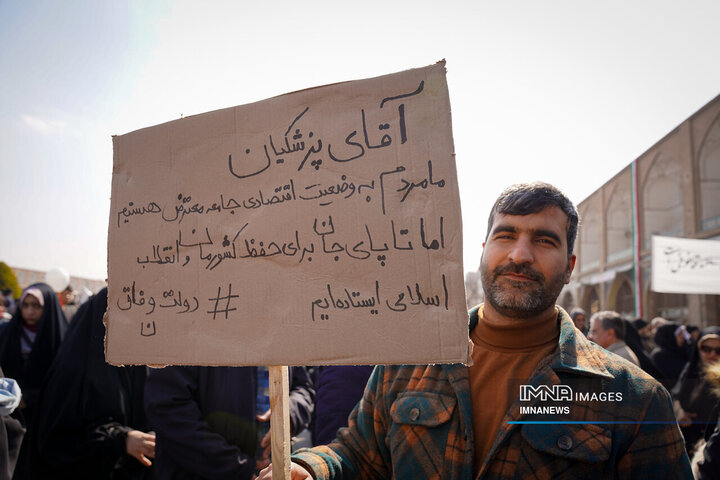 آقای پزشکیان
ما مردم به وضعیت اقتصادی جامعه معترض هستیم
اما تا پای جان برای حفظ کشورمان و انقلاب
اسلامی ایستاده‌ایم
# دولت وفاق
ن
IMNA IMAGES
IMNANEWS